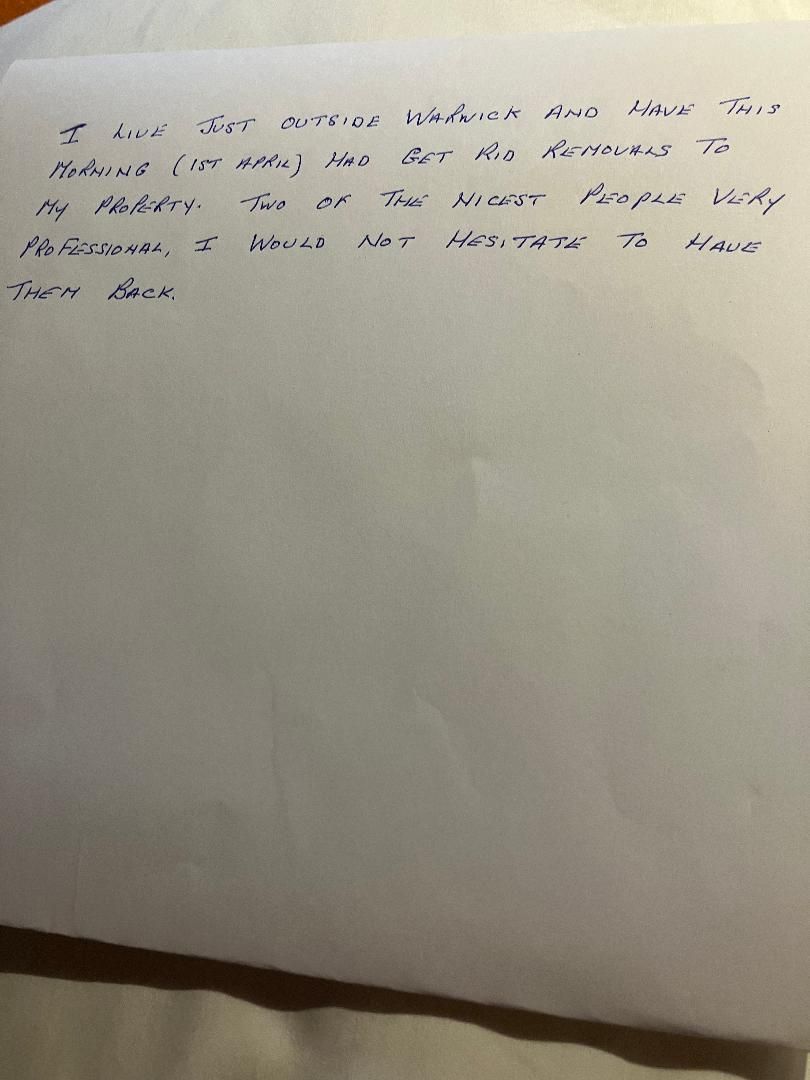 I LIVE JUST OUTSIDE WARWICK AND HAVE THIS
MORNING (1ST APRIL) HAD GET RID REMOVALS TO
MY PROPERTY. TWO OF THE NICEST PEOPLE VERY
PROFESSIONAL, I WOULD NOT HESITATE TO HAVE
THEM BACK.